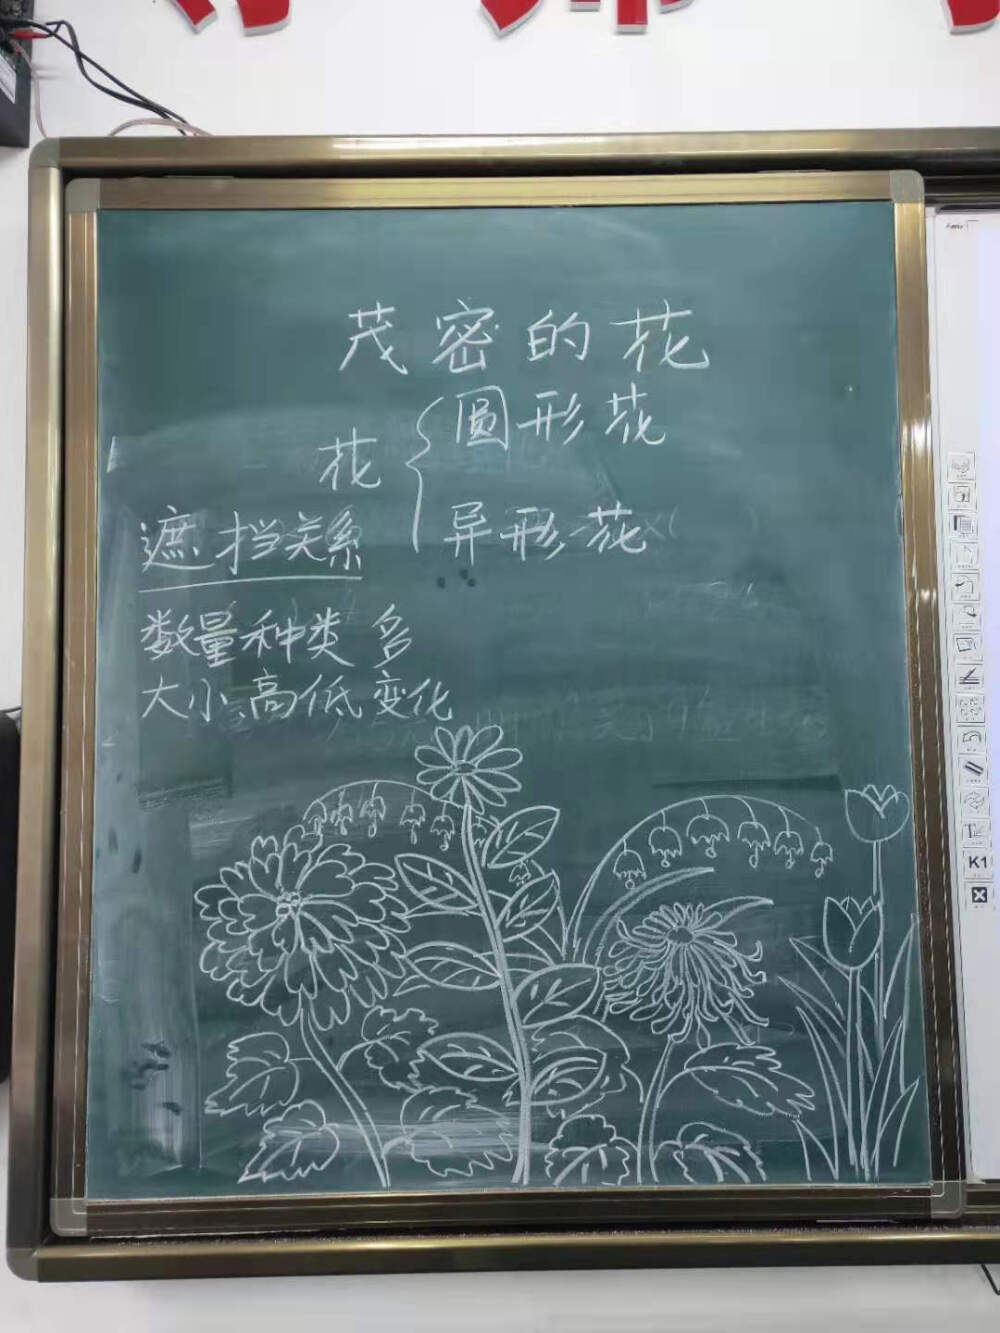 茂密的花
花
圆形花
异形花
遮挡关系
数量种类多
大小、高低变化
K1